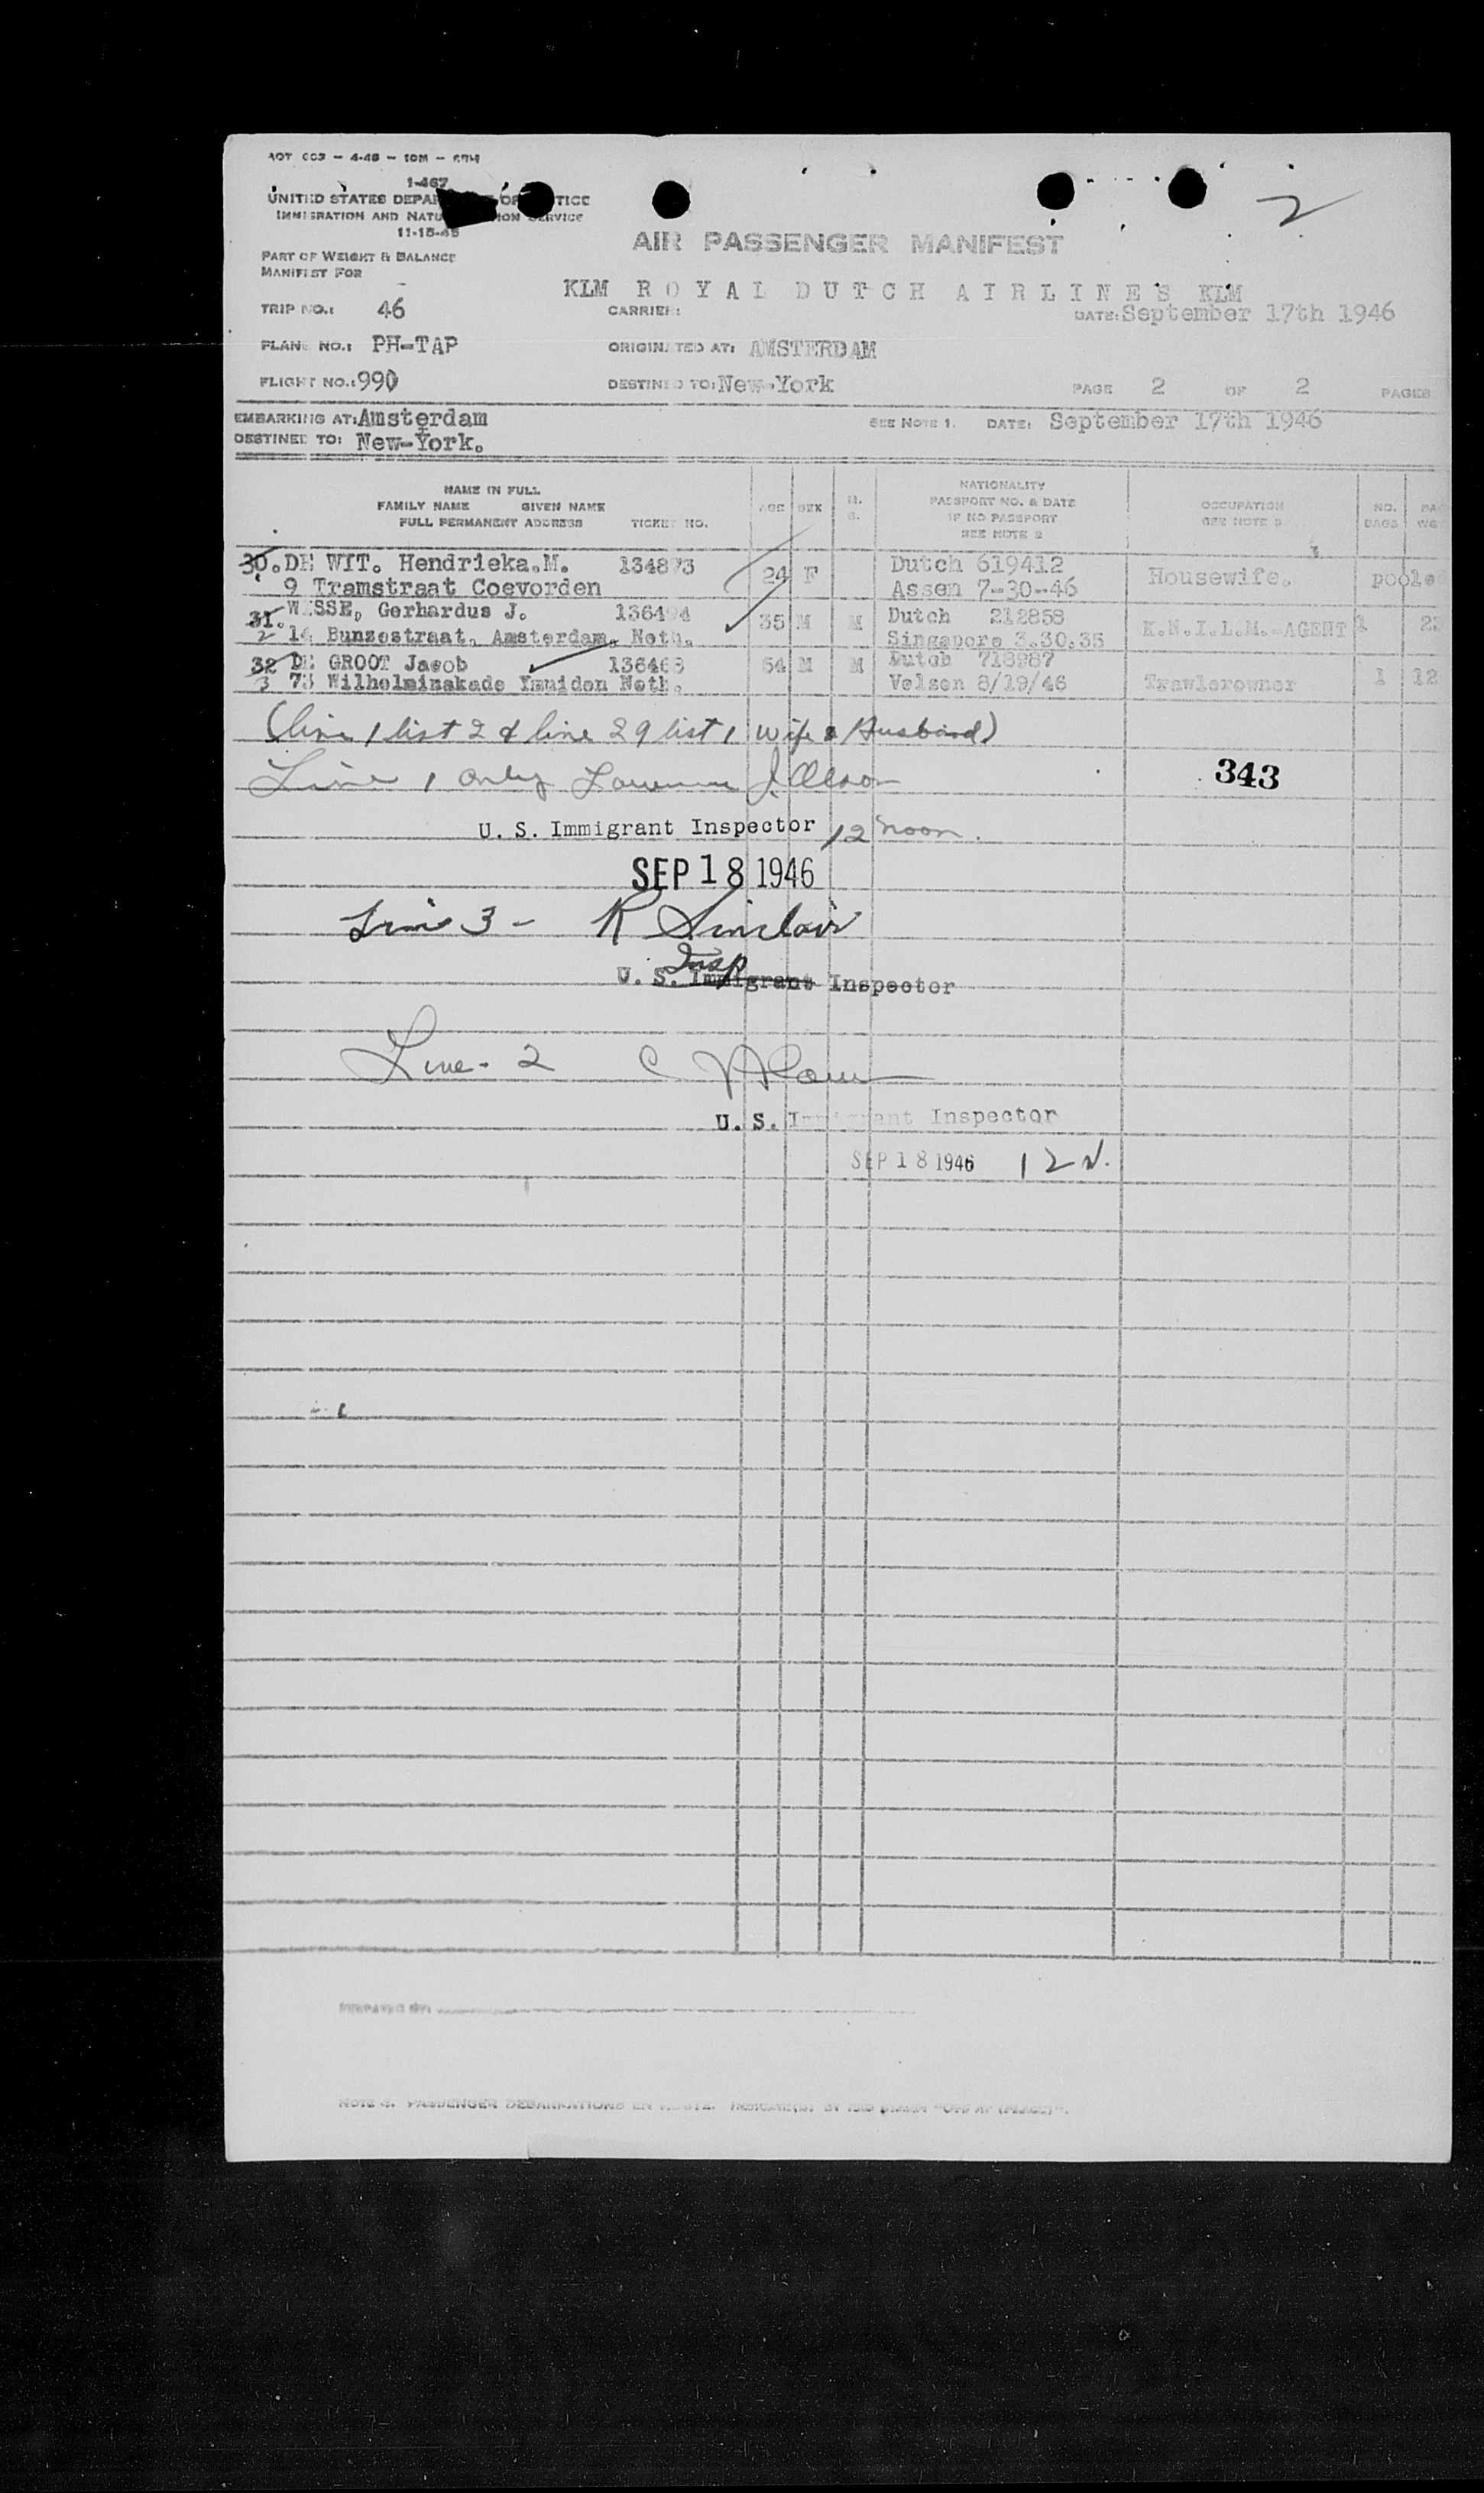 1-467
UNITED STATES DEPA OF TICE
IMMIGRATION AND NATU ION SERVICE
11-15-45
2
AIR PASSENGER MANIFEST
PART OF WEIGHT & BALANCE
MANIFEST FOR
KLM ROYAL DUTCH AIRLINES KLM
TRIP NO.: 46 CARRIER: DATE: September 17th 1946
PLANE NO.: PH-TAP ORIGINATED AT: AMSTERDAM
FLIGHT NO.: 990 DESTINED TO: New-York PAGE 2 OF 2 PAGES
EMBARKING AT: Amsterdam SEE NOTE 1. DATE: September 17th 1946
DESTINED TO: New-York.
NAME IN FULL
FAMILY NAME GIVEN NAME
FULL PERMANENT ADDRESS TICKET NO.
AGE SEX M. S.
NATIONALITY
PASSPORT NO. & DATE
IF NO PASSPORT
SEE NOTE 2
OCCUPATION
SEE NOTE 3
NO. BAGS
30. DE WIT. Hendrieka.M. 134873 24 F Dutch 619412 Housewife.
9 Tramstraat Coevorden Assen 7-30-46
31. W SSE, Gerhardus J. 136494 35 M M Dutch 212858 K.N.I.L.M.-AGENT 1
2 14 Bunzestraat, Amsterdam, Neth. Singapore 3.30.35
32 DE GROOT Jacob 136468 54 M M Dutch 718987 Trawlerowner 1 12
3 73 Wilhelminakade Ymuiden Neth. Velsen 8/19/46
(line 1 list 2 & line 29 list 1 wife & Husband)
Line 1 only J. Olson
343
U. S. Immigrant Inspector 12 noon.
SEP 18 1946
Line 3 - R Sinclair
Insp
U. S. Immigrant Inspector
Line - 2 C
U. S. Immigrant Inspector
SEP 18 1946 12 N.
PREPARED BY:
NOTE 4. PASSENGER DEBARKATIONS EN ROUTE.